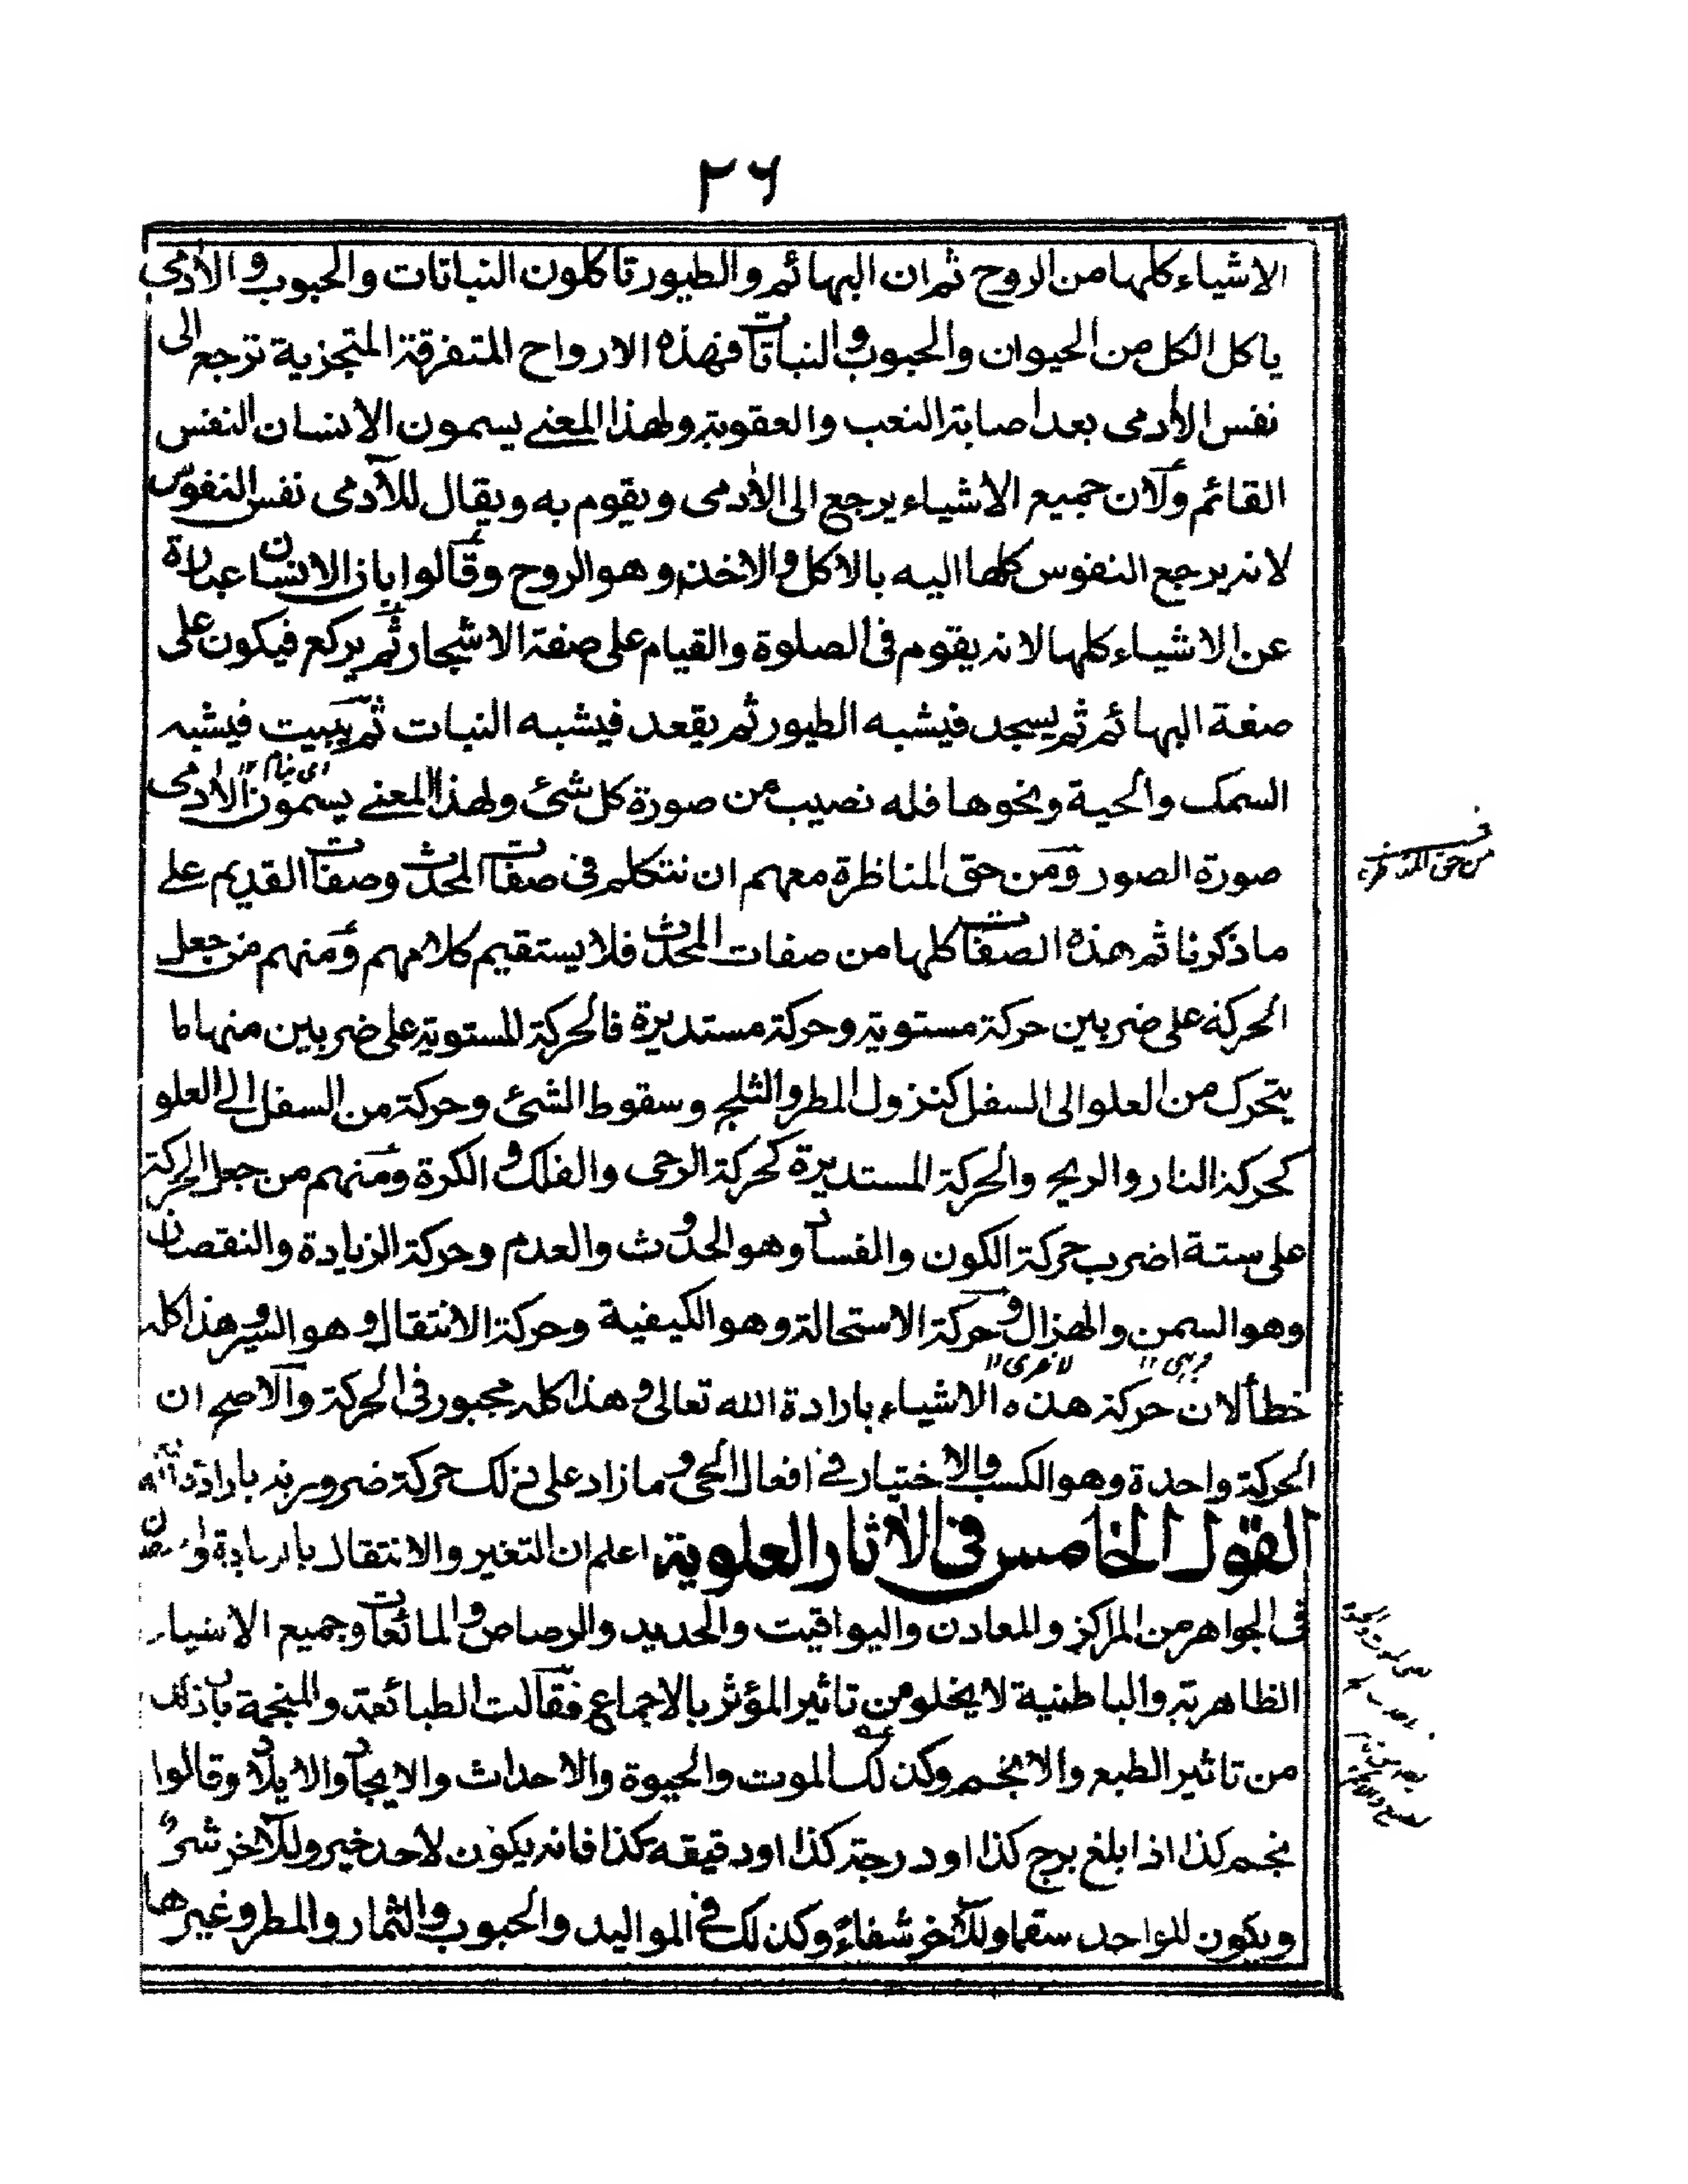 ٢٦
الاشياء كلها من الروح ثم ان البهائم والطيور تاكلون النباتات والحبوب والاٰدمى
ياكل الكل من الحيوان والحبوب والنباتات فهذه الارواح المتفرقة المتجزية ترجع الى
نفس الاٰدمى بعد اصابة التعب والعقوبة ولهذا المعنے يسمون الانسان النفس
القائم ولان جميع الاشياء يرجع الى الاٰدمى ويقوم به ويقال للاٰدمى نفس النفوس
لانه يرجع النفوس كلها اليه بالاكل والاخذ وهو الروح وقالوا بان الانسان عبارة
عن الاشياء كلها لانه يقوم فى الصلوة والقيام على صفة الاشجار ثم يركع فيكون على
صفة البهائم ثم يسجد فيشبه الطيور ثم يقعد فيشبه النبات ثم يبيت فيشبه
اى ينام ١٢
السمك والحية ونحوها فله نصيب من صورة كل شئ ولهذا المعنے يسمون الاٰدمى
صورة الصور ومن حق المناظرة معهم ان نتكلم فى صفات المحدث وصفات القديم علے
من حق المناظرة
ما ذكرنا ثم هذه الصفات كلها من صفات المحدث فلا يستقيم كلامهم ومنهم من جعل
الحركة على ضربين حركة مستوية وحركة مستديرة فالحركة المستوية على ضربين منها ما
يتحرك من العلو الى السفل كنزول المطر والثلج وسقوط الشئ وحركة من السفل الے العلو
كحركة النار والريح والحركة المستديرة كحركة الرحى والفلك والكرة ومنهم من جعل الحركة
على ستة اضرب حركة الكون والفساد وهو الحدوث والعدم وحركة الزيادة والنقصان
وهو السمن والهزال وحركة الاستحالة وهو الكيفية وحركة الانتقال وهو السير وهذا كله
فربہى ١٢ لاغرى ١٢
خطأ لان حركة هذه الاشياء بارادة الله تعالى وهذا كله مجبور فى الحركة والاصح ان
الحركة واحدة وهو الكسب والاختيار فے افعال الحى وما زاد على ذلك حركة ضرورية بارادة الله
القول الخامس فى الاٰثار العلوية اعلم ان التغير والانتقال بالزيادة والنقصان
فى الجواهر من المراكز والمعادن واليواقيت والحديد والرصاص والمائعات وجميع الاشياء
الظاهرية والباطنية لا يخلو من تاثير المؤثر بالاجماع فقالت الطبائعة والمنجمة بان ذلك
من تاثير الطبع والانجم وكذلك الموت والحيوة والاحداث والايجاد والايلاد وقالوا
نجم كذا اذا بلغ برج كذا او درجة كذا او دقيقه كذا فانه يكون لاحد خير وللاٰخر شر
ويكون للواحد سقما وللاٰخر شفاءً وكذلك فے المواليد والحبوب والثمار والمطر وغيرها